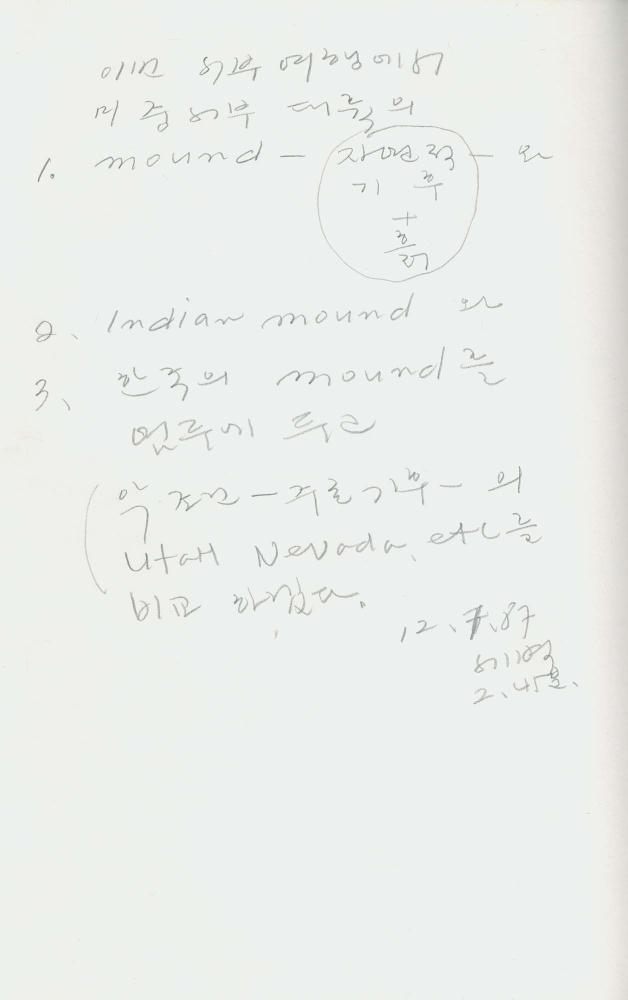 이번 서부 여행에서
미 중서부 대륙의
1. mound – 자연력 – 와
기 후
+
흙
2. Indian mound 와
3. 한국의 mound를
염두에 두고
악조건 – 주로 기후 – 의
Utah Nevada, etc를
비교 하였다.
12. 7. 87
새벽
2.45분.